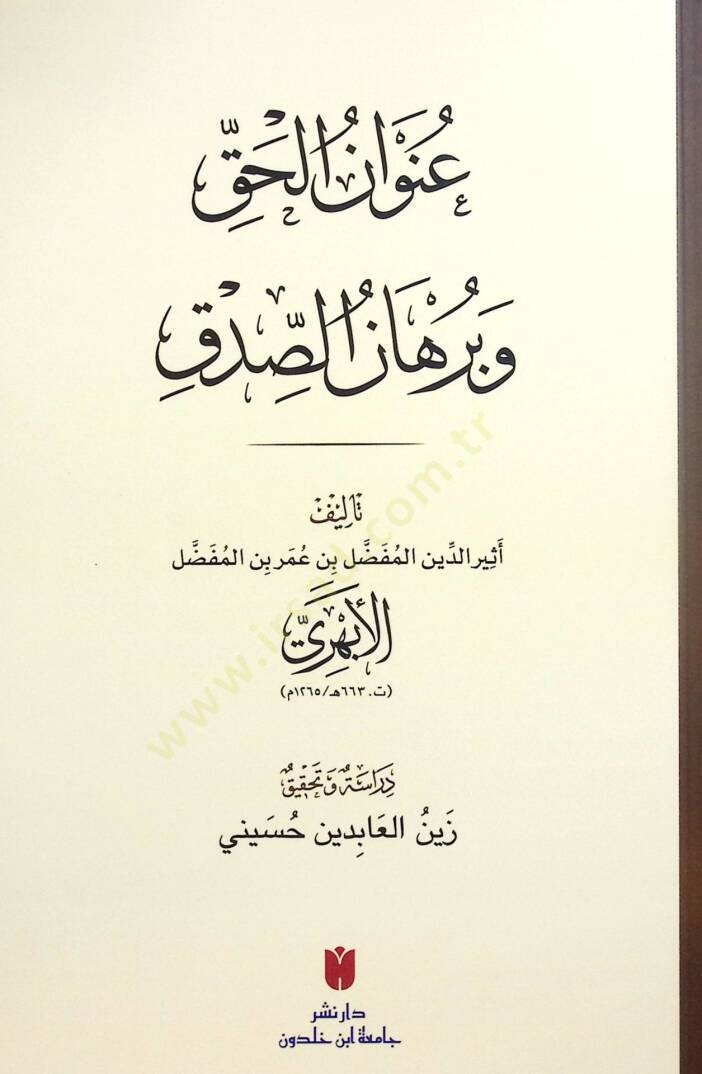 عُنْوَانُ الْحَقِّ
وَبُرْهَانُ الصِّدْقِ
تَأْلِيفُ
أَثِيرالدِّين المُفَضَّل بِن عُمَر بِن المُفَضَّل
الأَبْهَرِيّ
(ت. ٦٦٣هـ/١٢٦٥م)
دِرَاسَةٌ وَتَحْقِيقٌ
زَينُ العَابِدِين حُسَيني
دار نشر
جامعة ابن خلدون
www.irsad.com.tr